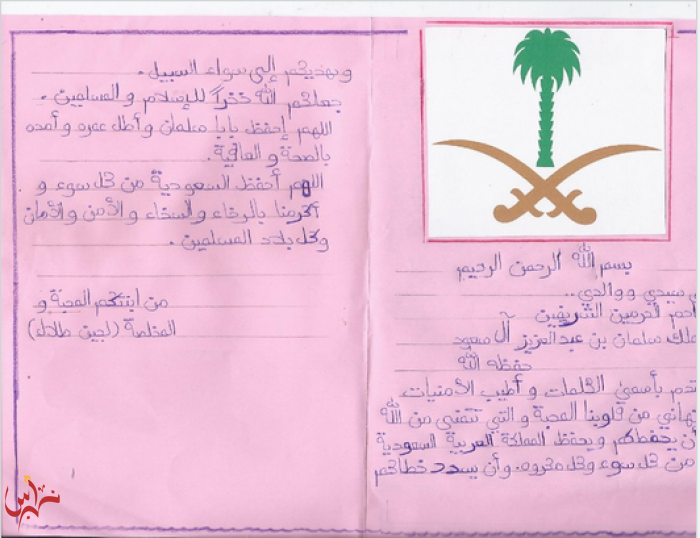 بسم الله الرحمن الرحيم
سيدي ووالدي..
الحرمين الشريفين
سلمان بن عبدالعزيز آل سعود
حفظه الله
بأسمى الكلمات و أطيب الأمنيات
من قلوبنا المحبة و التي تتمنى من الله
أن يحفظكم ويحفظ المملكة العربية السعودية
من كل سوء وكل مكروه. وأن يسدد خطاكم
ويهديكم إلى سواء السبيل.
جعلكم الله فخراً للإسلام و المسلمين.
اللهم إحفظ بابا سلمان وأطل عمره وأمده
بالصحة و العافية.
اللهم أحفظ السعودية من كل سوء و
أكرمنا بالرخاء والسخاء و الأمن والأمان
وكل بلاد المسلمين.
من ابنتكم المحبة و
المخلصة (لجين طلال)